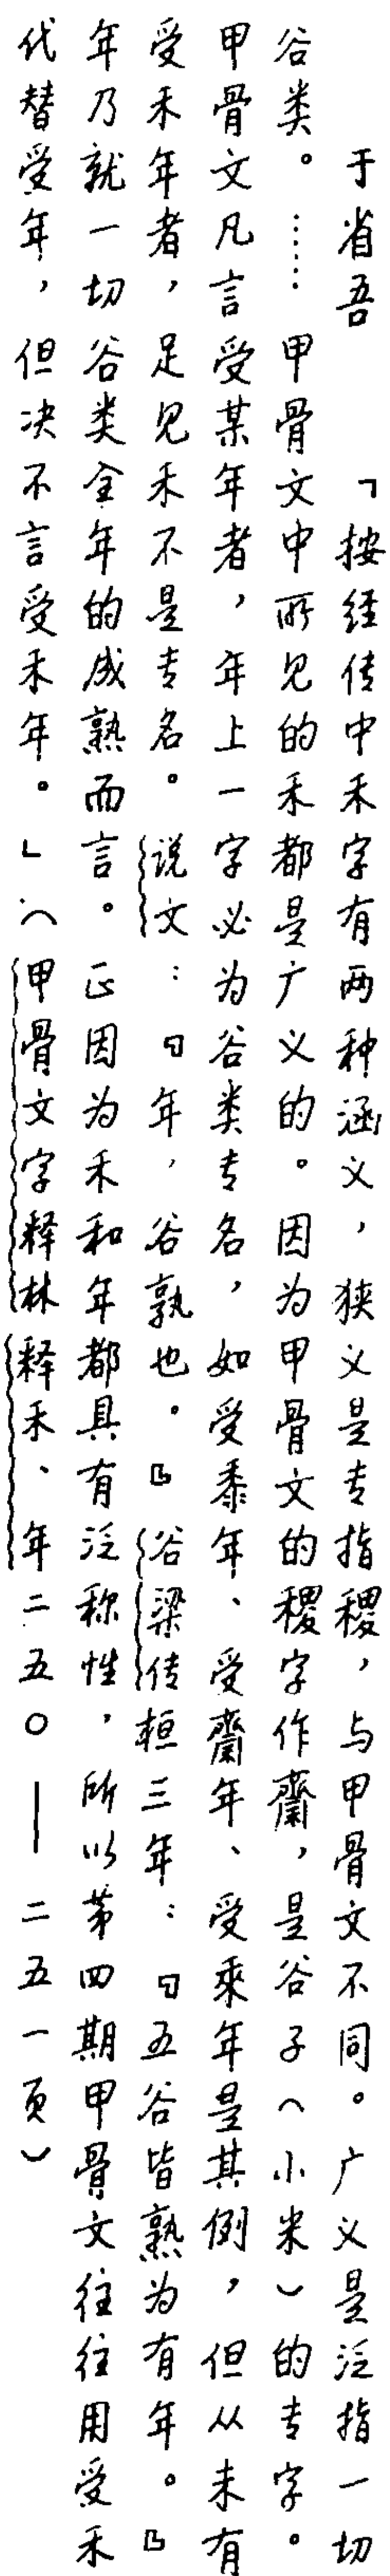 于省吾　「按经传中禾字有两种涵义，狭义是专指稷，与甲骨文不同。广义是泛指一切
谷类。……甲骨文中所见的禾都是广义的。因为甲骨文的稷字作齋，是谷子（小米）的专字。
甲骨文凡言受某年者，年上一字必为谷类专名，如受黍年、受齋年、受乘年是其例，但从未有
受禾年者，足见禾不是专名。说文：『年，谷孰也。』谷梁传桓三年：『五谷皆熟为有年。』
年乃就一切谷类全年的成熟而言。正因为禾和年都具有泛称性，所以第四期甲骨文往往用受禾
代替受年，但决不言受禾年。」（甲骨文字释林释禾、年二五〇——二五一页）